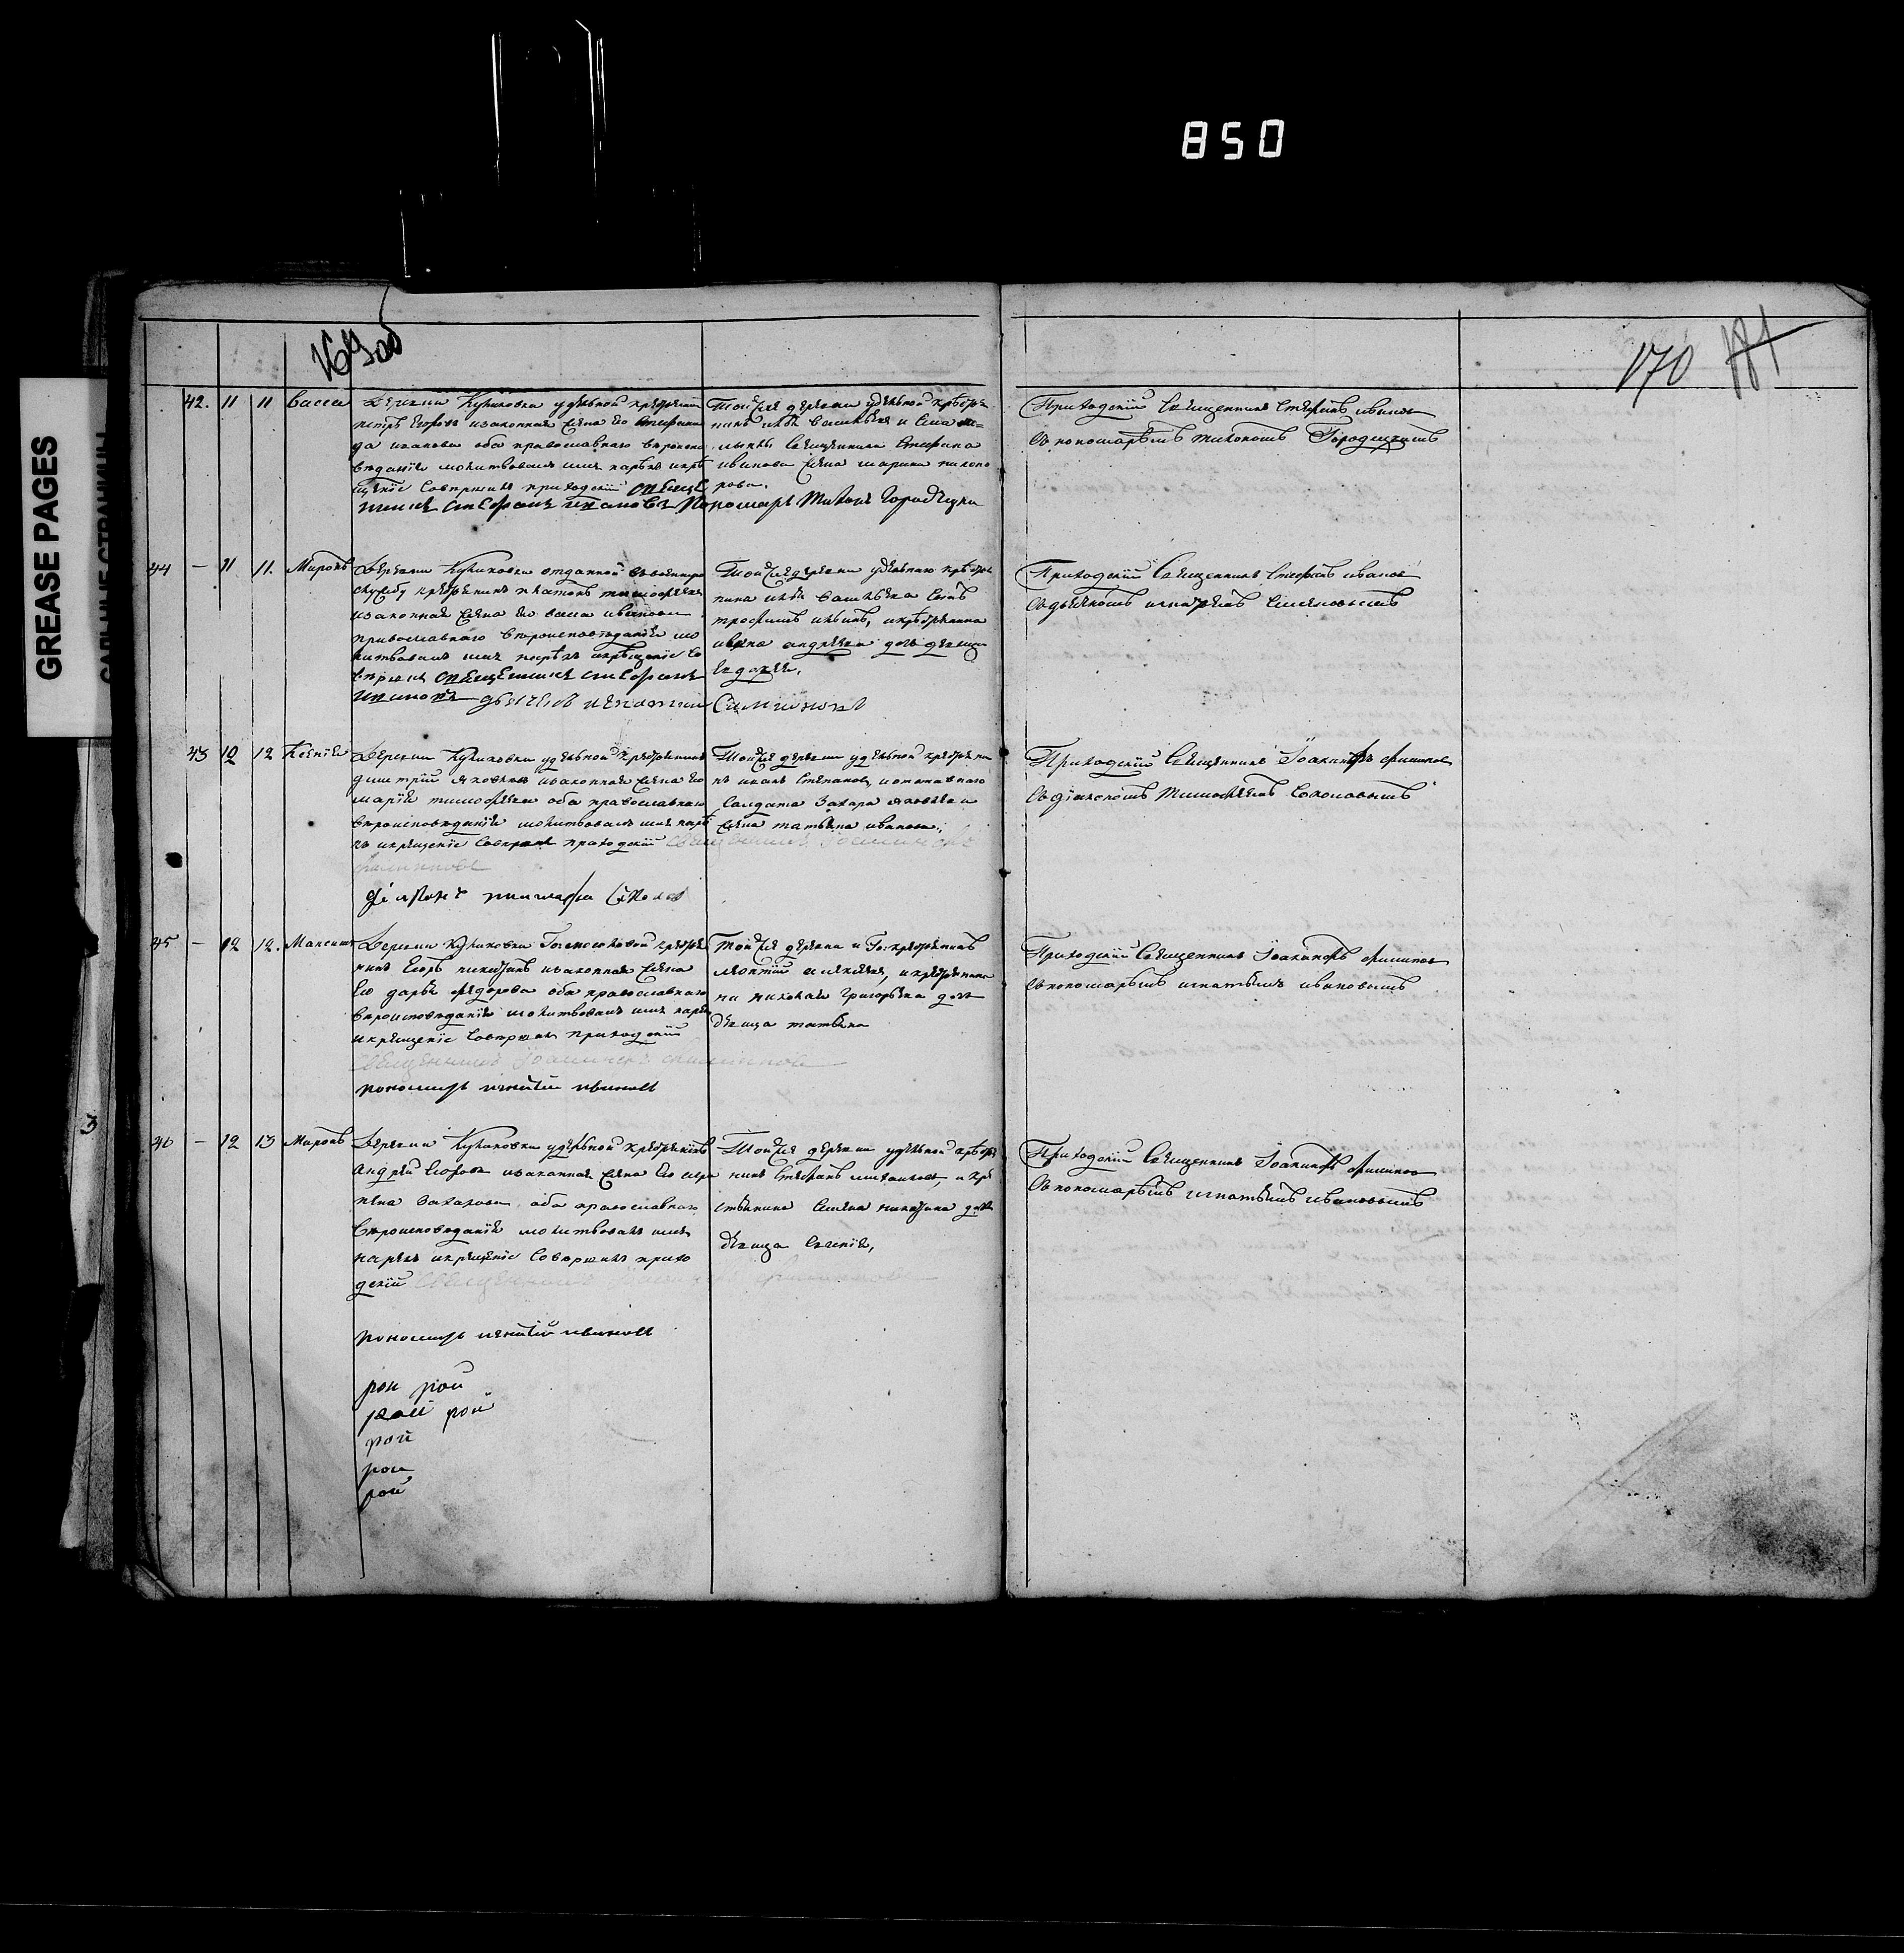 850
GREASE PAGES
САЛЬНЫЕ СТРАНИЦЫ
169 об
170 181
42. 11 11 Васса
Деревни Куликовки удѣльной крестьянинъ
петръ Егоровъ изаконная жена его
да иванова оба православнаго вѣроиспо
вѣданія молитвовалъ имя нарѣкъ икрѣ
щеніе совершилъ приходскій священ
никъ Стефанъ Ивановъ Пономарь Тихонъ Городецкій
Тойже деревни удѣльной крестья
священника Стефана
иванова жена марина никоно
рова.
Приходскій Священникъ Стефанъ ивановъ
съ пономарѣмъ тихономъ Городецкимъ
44 — 11 11. Миронъ
Деревни Куликовки отданной въ военную
службу крестьянинъ платонъ тимофеевъ
изаконная жена его васса иванова
православнаго вѣроисповѣданія мо
литвовалъ имя нарѣкъ икрѣщеніе со
вершилъ священникъ Стефанъ
Ивановъ дьячекъ игнатій Симионовъ
Тойже деревни удѣльнаго крестья
нина васильева сынъ
трофимъ икрестьянина
ивана андреева дочь девица
евдокея.
Приходскій Священникъ Стефанъ ивановъ
съ дьячкомъ игнатіемъ Симионовымъ
43 12 12 Ксенія
Деревни Куликовки удѣльной крестьянинъ
дмитрій яковлевъ изаконная жена его
марія тимофеева оба православнаго
вѣроисповѣданія молитвовалъ имя нарѣ
къ икрещеніе совершилъ приходскій священникъ Іоакинфъ
филиповъ
діаконъ тимофей Соколовъ
Тойже деревни удѣльной крестьяни
нъ иванъ Степановъ, иотставнаго
Салдата Захара яковлева
жена татьяна иванова.
Приходскій Священникъ Іоакинфъ филиповъ
съ діакономъ тимофеемъ Соколовымъ
45 — 12 12. Максимъ
Деревни Куликовки крестья
нинъ Егоръ никитинъ изаконная жена
его дарья федорова оба православнаго
вѣроисповѣданія молитвовалъ имя нарѣкъ
икрещеніе совершилъ приходскій
священникъ Іоакинфъ филиповъ
пономарь игнатій ивановъ
Тойже деревни и крестьянинъ
леонтій алексѣевъ, икрестьянина
николая григорьева дочь
девица татьяна
Приходскій Священникъ Іоакинфъ филиповъ
съ пономарѣмъ игнатьемъ ивановымъ
46 — 12 13 Миронъ
Деревни Куликовки удѣльной крестьянинъ
андрей Егоровъ изаконная жена его агра
пена захарова оба православнаго
вѣроисповѣданія молитвовалъ имя
нарѣкъ икрещеніе совершилъ прихо
дскій священникъ Іоакинфъ филиповъ
пономарь игнатій ивановъ
Тойже деревни удѣльной крестья
нинъ Стефанъ михайловъ, и кре
стьянина Семена никитина дочь
девица ксенія,
Приходскій Священникъ Іоакинфъ филиповъ
съ пономарѣмъ игнатьемъ ивановымъ
рои рои
рои рои
рои
рои
рои
3